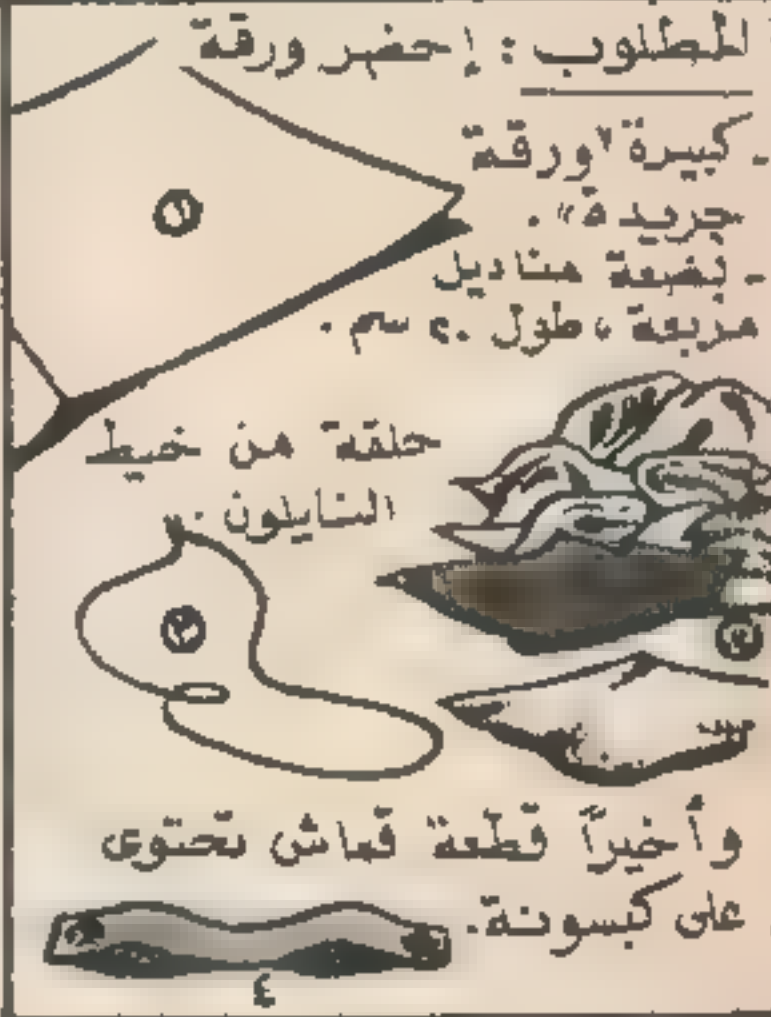 المطلوب : إحضر ورقة
- كبيرة "ورقة
جريدة" .
- بضعة مناديل
مربعة ، طول ٢٠ سم .
١
حلقة من خيط
النايلون .
٣
٢
وأخيرًا قطعة قماش تحتوى
على كبسونة .
٤